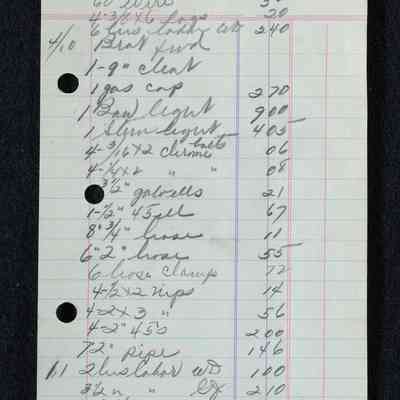 60' wire 30
4-3/8x6 lags 20
6 hrs labor WD 240
4/10 Boat fwd
1-9" cleat
1 gas cap 270
1 Bow light 900
1 Stern light 405
4-3/16x2 chrome bolts 06
4-1/4x2 " " 08
3 1/2" galv ells 21
1-1/2" 45 ell 67
8' 3/4" hose 11
6" 2" hose 55
6 hose clamps 72
4-1/2x2 nips 14
4-2x3 " 56
4-2" 45s 200
72" pipe 146
11 2 hrs labor WD 100
3 1/2 " " 210